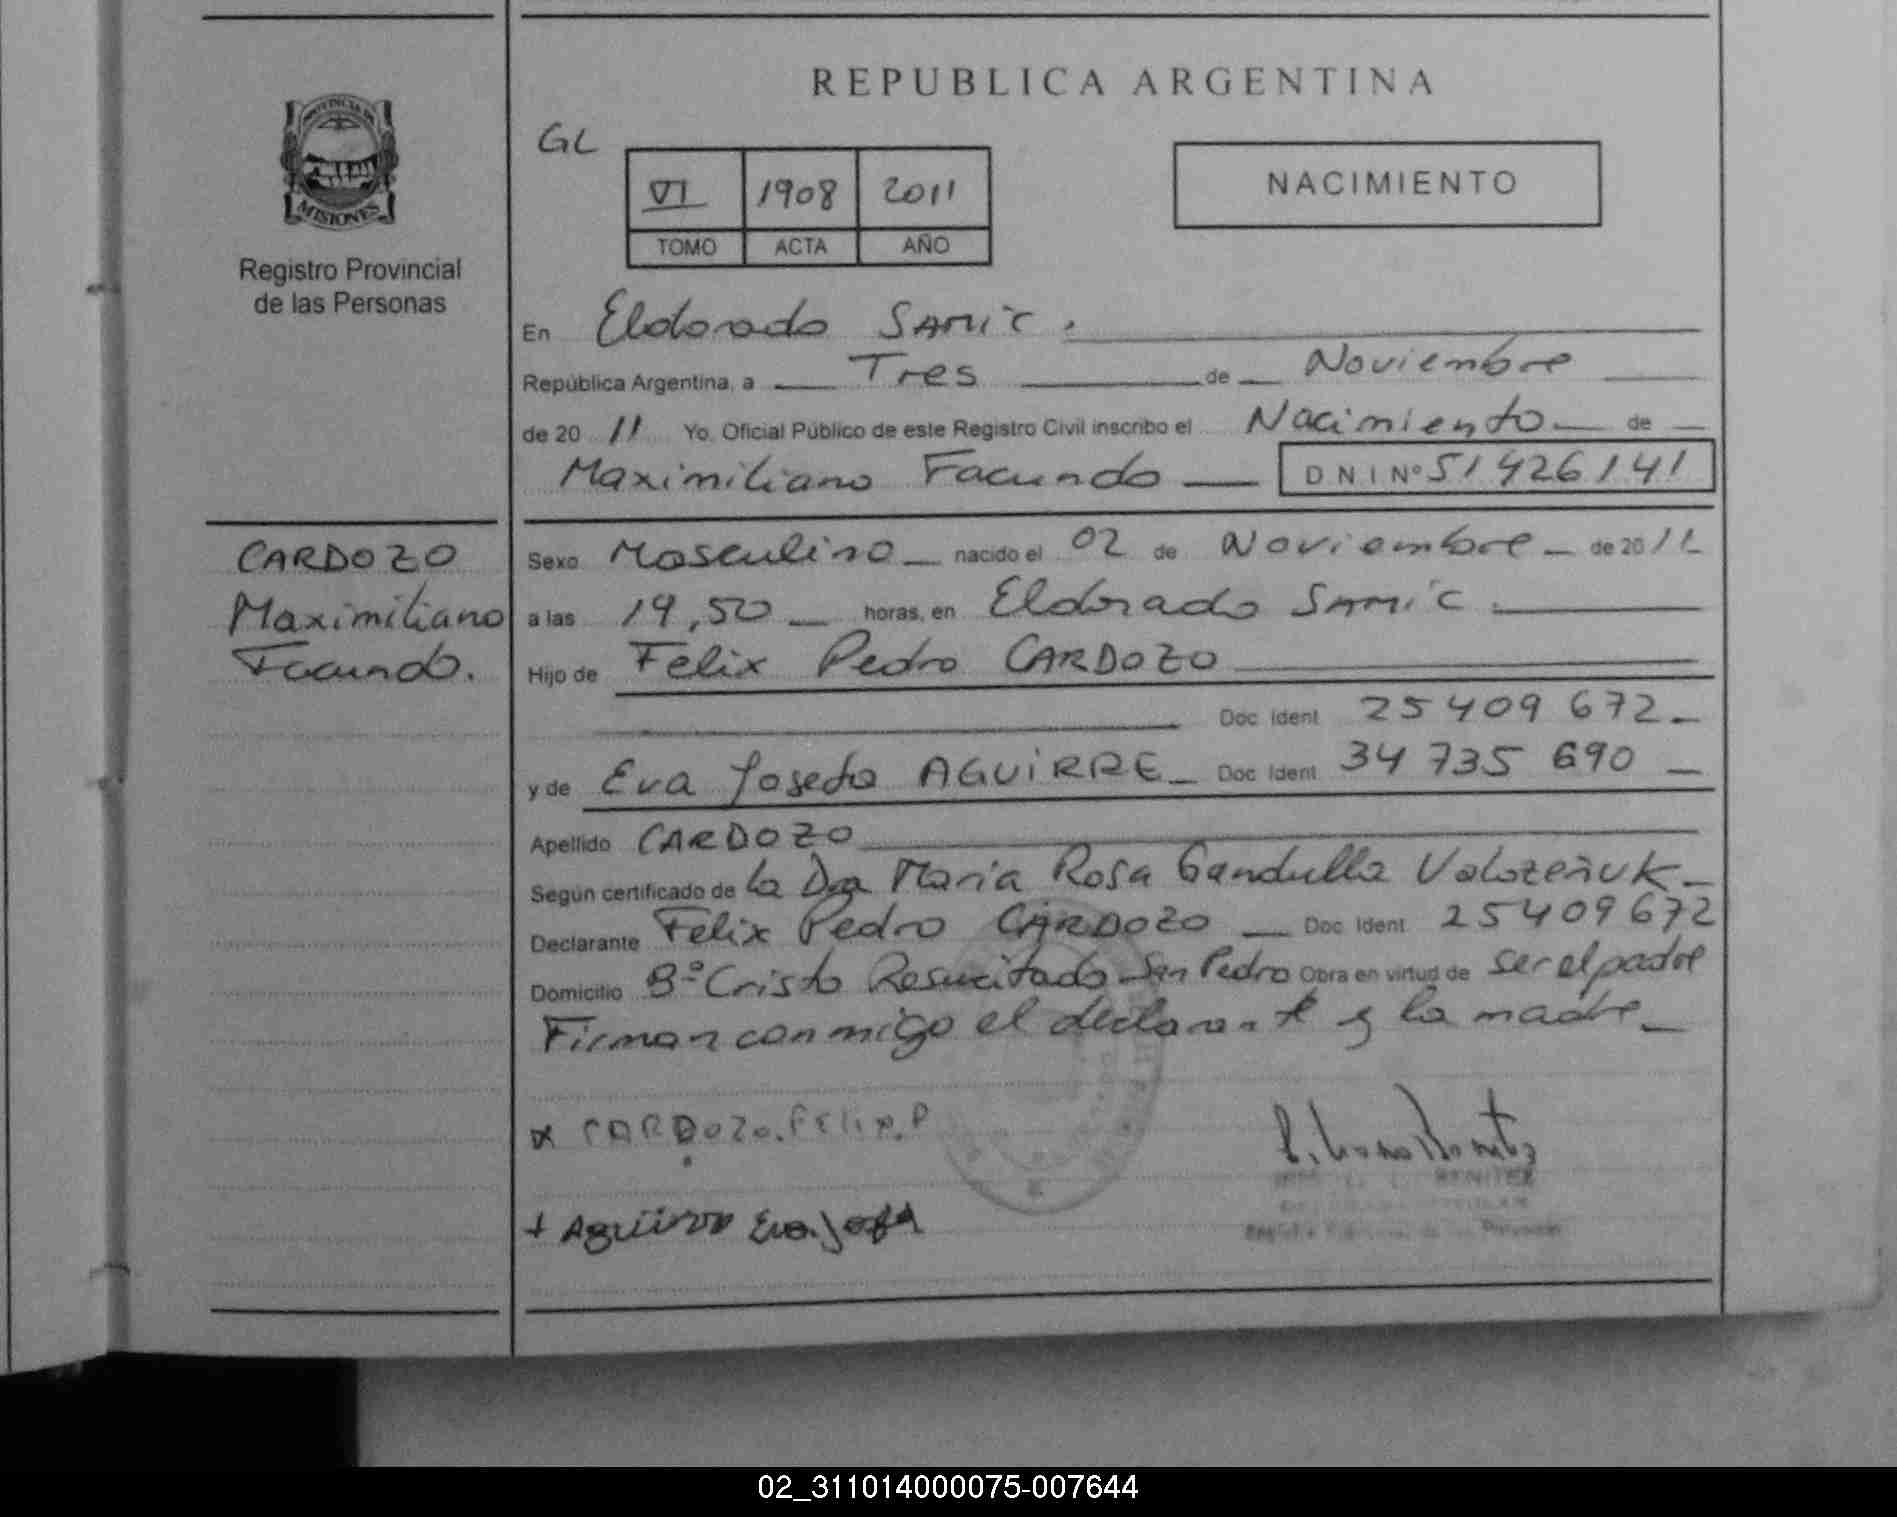 REPUBLICA ARGENTINA
PROVINCIA DE
MISIONES
Registro Provincial
de las Personas
GL
VI 1908 2011
TOMO ACTA AÑO
NACIMIENTO
En Eldorado SAMIC.
República Argentina, a Tres de Noviembre
de 20 11 Yo, Oficial Público de este Registro Civil inscribo el Nacimiento de
Maximiliano Facundo D N I Nº 51426141
CARDOZO
Maximiliano
Facundo.
Sexo Masculino nacido el 02 de Noviembre de 2011
a las 19,50 horas, en Eldorado SAMIC.
Hijo de Felix Pedro CARDOZO
Doc Ident 25 409 672
y de Eva Josefa AGUIRRE Doc Ident 34 735 690
Apellido CARDOZO
Según certificado de la Dra Maria Rosa Gandulla
Declarante Felix Pedro CARDOZO Doc Ident 25409672
Domicilio Bº Cristo Resucitado San Pedro Obra en virtud de ser el padre
Firman conmigo el declarante y la madre
x CARDOZO. FELIX. P
+ Aguirre Eva Josefa
BENITEZ
02_311014000075-007644